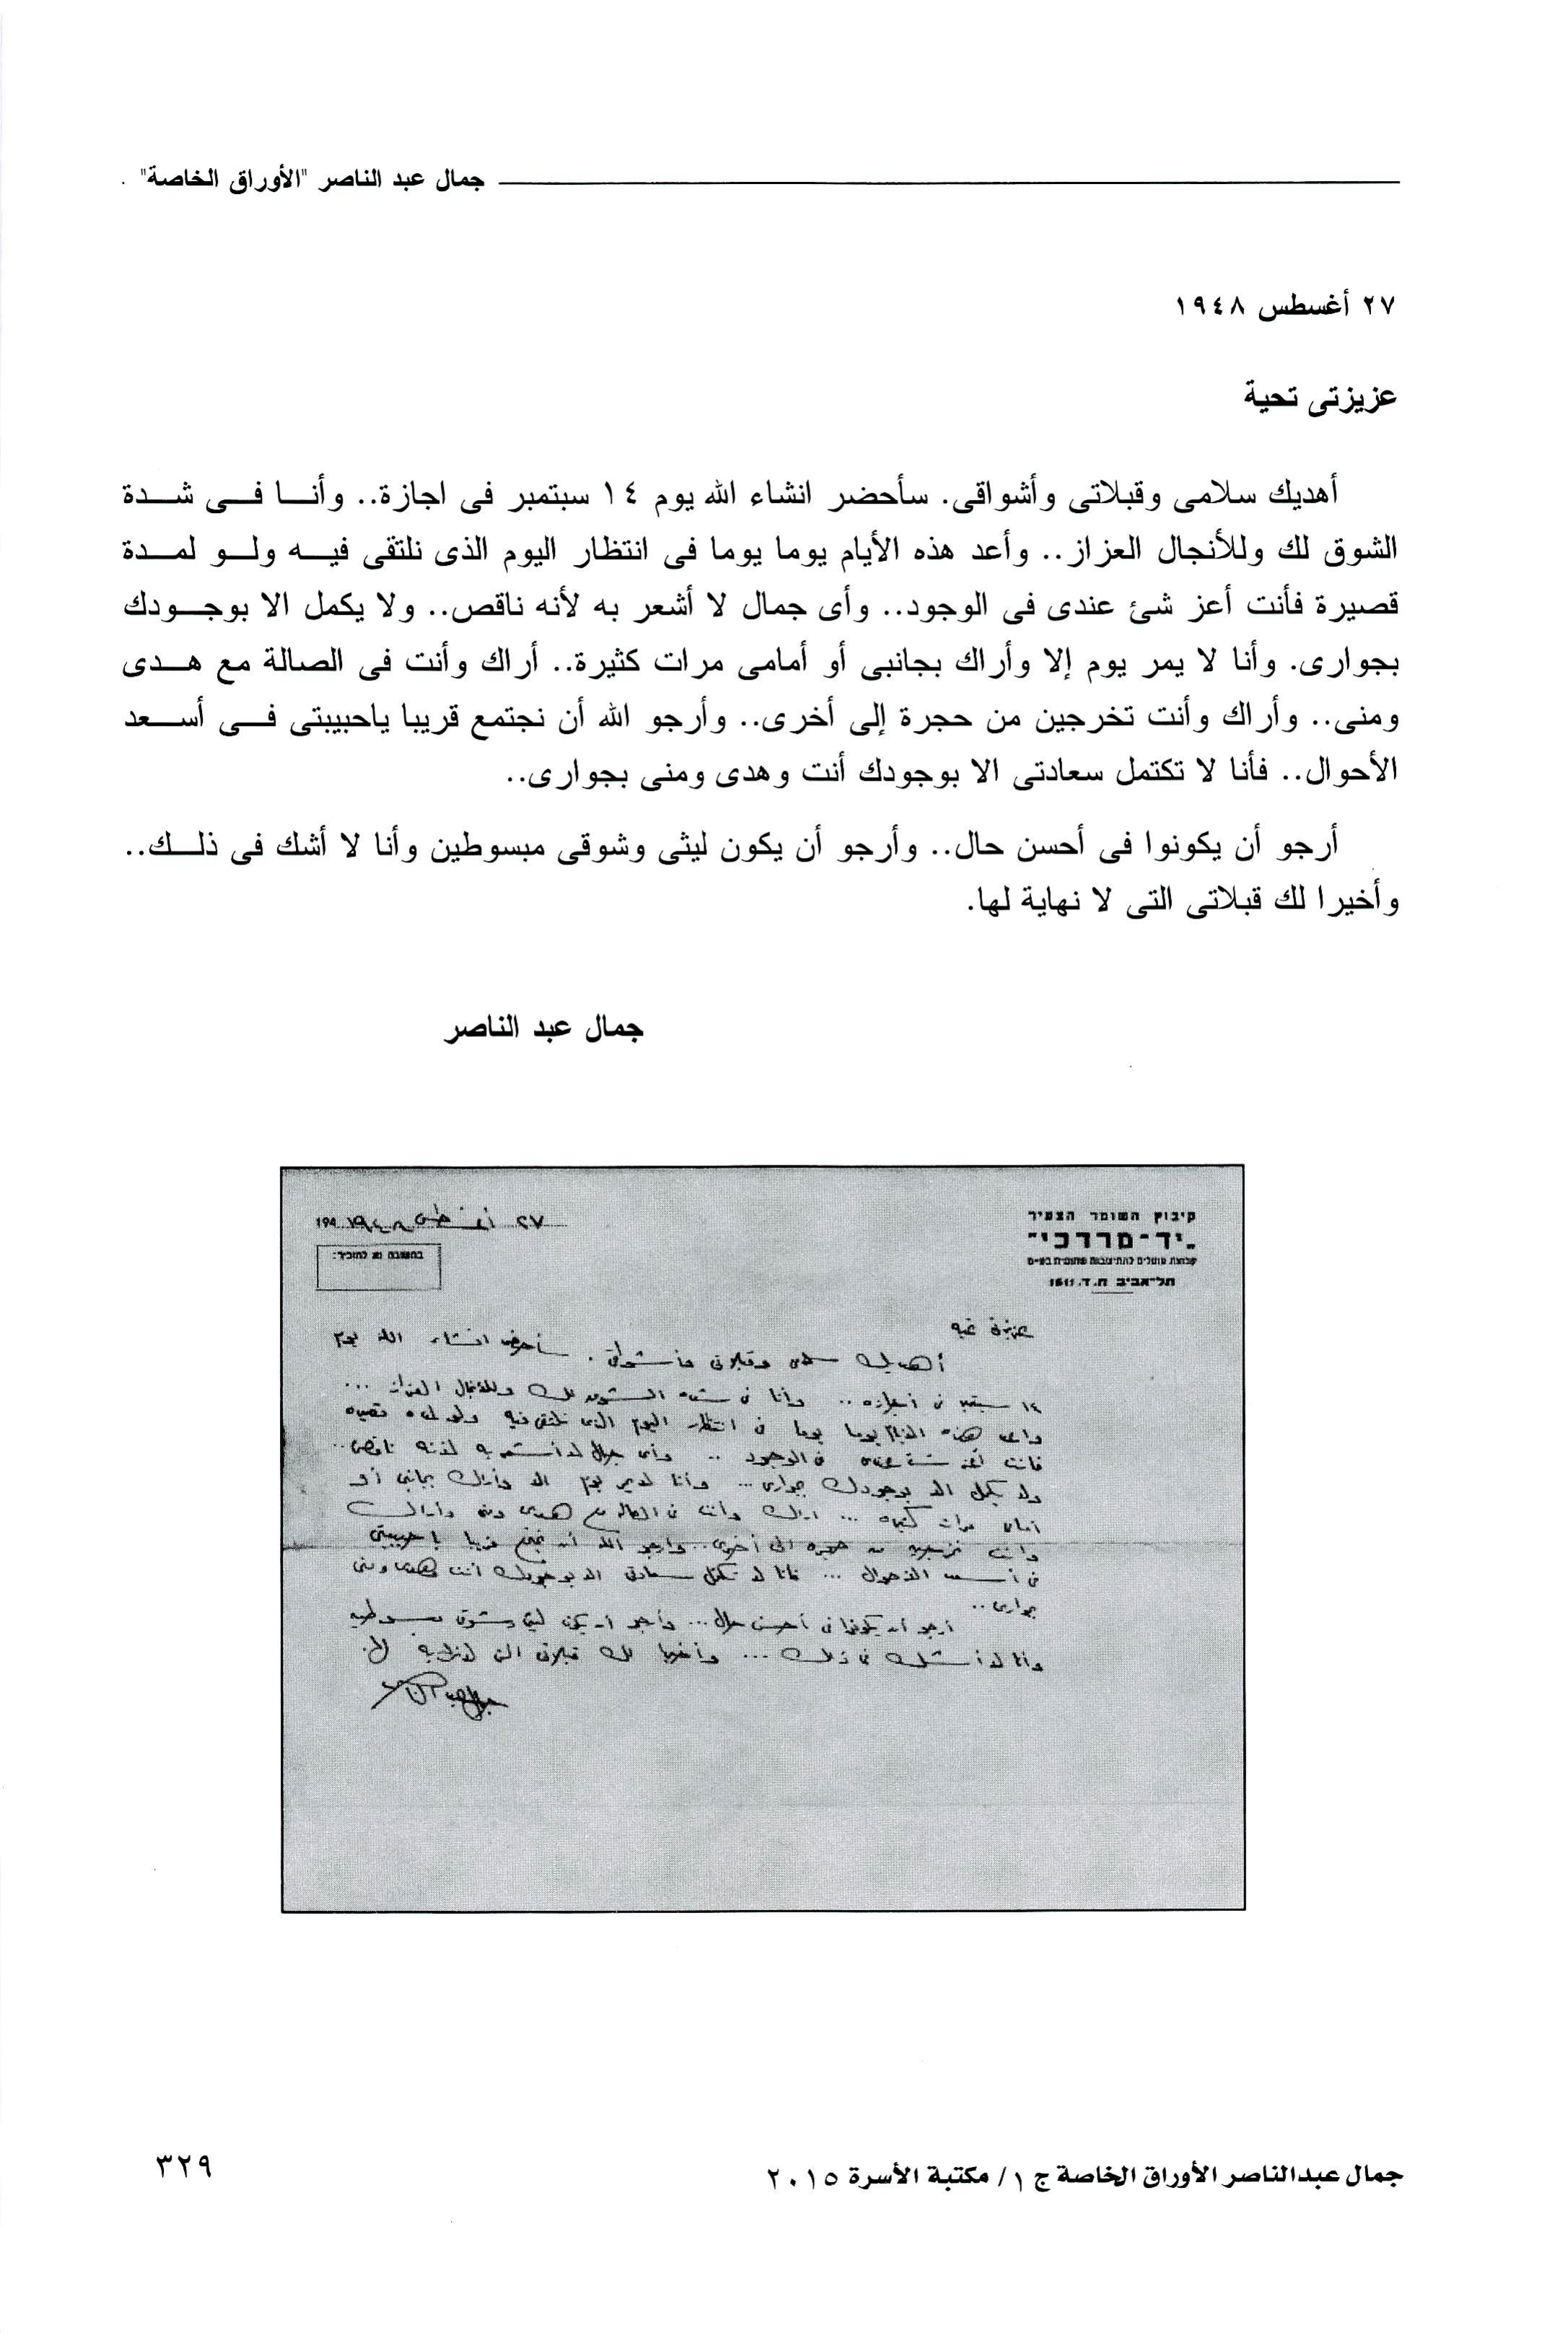 جمال عبد الناصر "الأوراق الخاصة"
٢٧ أغسطس ١٩٤٨
عزيزتى تحية
أهديك سلامى وقبلاتى وأشواقى. سأحضر انشاء الله يوم ١٤ سبتمبر فى اجازة.. وأنا فى شدة
الشوق لك وللأنجال العزاز.. وأعد هذه الأيام يوما يوما فى انتظار اليوم الذى نلتقى فيه ولو لمدة
قصيرة فأنت أعز شئ عندى فى الوجود.. وأى جمال لا أشعر به لأنه ناقص.. ولا يكمل الا بوجودك
بجوارى. وأنا لا يمر يوم إلا وأراك بجانبى أو أمامى مرات كثيرة.. أراك وأنت فى الصالة مع هدى
ومنى.. وأراك وأنت تخرجين من حجرة إلى أخرى.. وأرجو الله أن نجتمع قريبا ياحبيبتى فى أسعد
الأحوال.. فأنا لا تكتمل سعادتى الا بوجودك أنت وهدى ومنى بجوارى..
أرجو أن يكونوا فى أحسن حال.. وأرجو أن يكون ليثى وشوقى مبسوطين وأنا لا أشك فى ذلك..
وأخيرا لك قبلاتى التى لا نهاية لها.
جمال عبد الناصر
קיבוץ השומר הצעיר
"יד-מרדכי"
תל-אביב ת.ד. 1611
194 ٢٧ أغسطس ١٩٤٨
בתשובה נא להזכיר:
عزيزتى تحية
أهديك سلامى وقبلاتى وأشواقى . سأحضر انشاء الله يوم
١٤ سبتمبر فى أجازة .. وأنا فى شدة الشوق لك وللأنجال العزاز ...
وأعد هذه الأيام يوما يوما فى انتظار اليوم الذى نلتقى فيه ولو لمدة قصيرة
فأنت أعز شئ عندى فى الوجود .. وأى جمال لا أشعر به لأنه ناقص ..
ولا يكمل الا بوجودك بجوارى ... وأنا لا يمر يوم الا وأراك بجانبى أو
أمامى مرات كثيرة ... أراك وأنت فى الصالة مع هدى ومنى وأراك
وأنت تخرجين من حجرة الى أخرى .. وأرجو الله أن نجتمع قريبا يا حبيبتى
فى أسعد الأحوال ... فأنا لا تكتمل سعادتى الا بوجودك أنت وهدى ومنى
بجوارى ..
أرجو أن يكونوا فى أحسن حال ... وأرجو أن يكون ليثى وشوقى مبسوطين
وأنا لا أشك فى ذلك ... وأخيرا لك قبلاتى التى لا نهاية لها.
جمال عبد الناصر
جمال عبدالناصر الأوراق الخاصة ج ١/ مكتبة الأسرة ٢٠١٥
٣٢٩